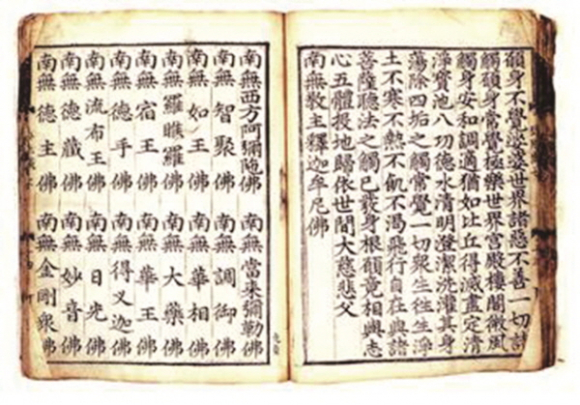 願身不覺娑婆世界諸惡不善一切諸
觸願身常覺極樂世界宮殿樓閣微風
觸身安和調適猶如比丘得滅盡定清
淨寶池八功德水清明澄潔洗濯其身
蕩除四垢之觸常覺一切衆生往生淨
土不寒不熱不飢不渴飛行自在與諸
菩薩聽法之觸已發身根願竟相與志
心五體投地歸依世間大慈悲父
南無教主釋迦牟尼佛
南無西方阿彌陀佛 南無當來彌勒佛
南無智聚佛 南無調御佛
南無如王佛 南無華相佛
南無羅睺羅佛 南無大藥佛
南無宿王佛 南無華王佛
南無德手佛 南無得叉迦佛
南無流布王佛 南無日光佛
南無德藏佛 南無妙音佛
南無德主佛 南無金剛衆佛